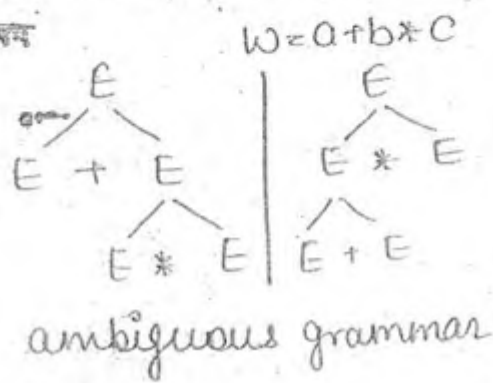 W = a+b*c
E E
E + E E * E
E * E E + E
ambiguous grammar